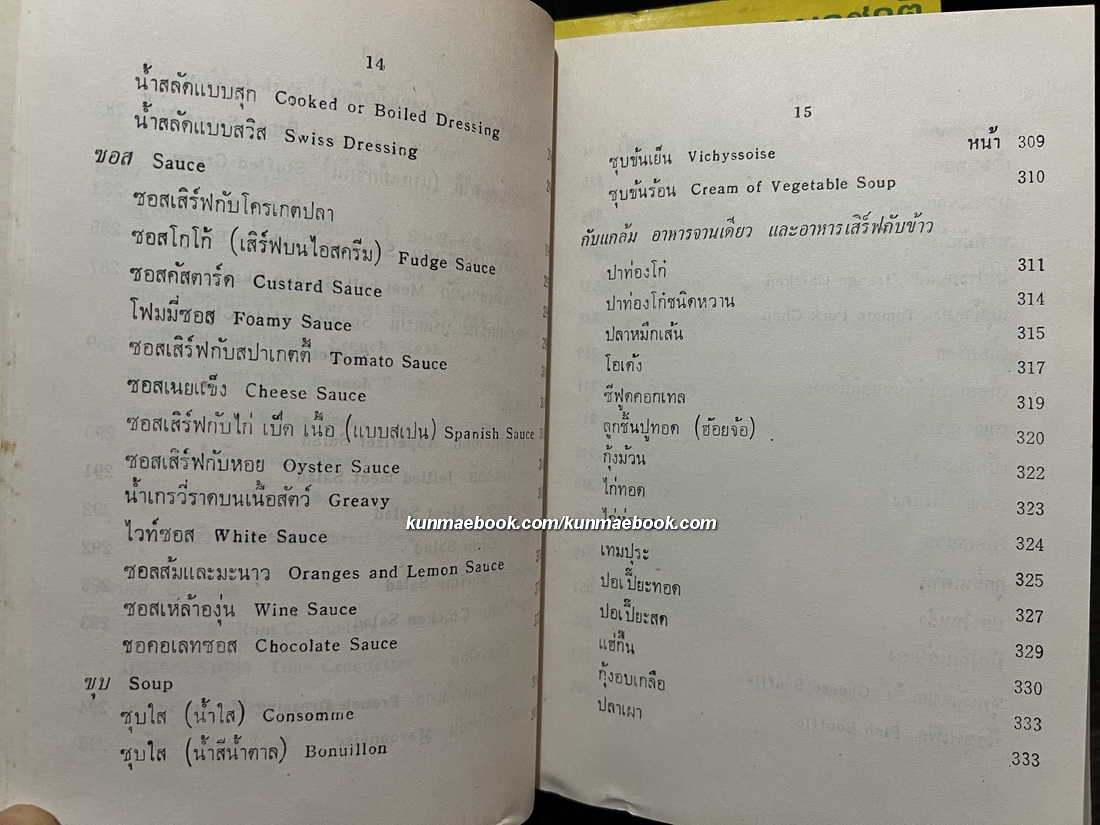 14
น้ำสลัดแบบสุก Cooked or Boiled Dressing
น้ำสลัดแบบสวิส Swiss Dressing
ซอส Sauce
ซอสเสิร์ฟกับโครเกตปลา
ซอสโกโก้ (เสิร์ฟบนไอสครีม) Fudge Sauce
ซอสคัสตาร์ด Custard Sauce
โฟมมี่ซอส Foamy Sauce
ซอสเสิร์ฟกับสปาเกตตี้ Tomato Sauce
ซอสเนยแข็ง Cheese Sauce
ซอสเสิร์ฟกับไก่ เป็ด เนื้อ (แบบสเปน) Spanish Sauce
ซอสเสิร์ฟกับหอย Oyster Sauce
น้ำเกรวี่ราดบนเนื้อสัตว์ Greavy
ไวท์ซอส White Sauce
ซอสส้มและมะนาว Oranges and Lemon Sauce
ซอสเหล้าองุ่น Wine Sauce
ชอคอเลทซอส Chocolate Sauce
ซุบ Soup
ซุบใส (น้ำใส) Consomme
ซุบใส (น้ำสีน้ำตาล) Bonuillon
15
หน้า
ซุบข้นเย็น Vichyssoise 309
ซุบข้นร้อน Cream of Vegetable Soup 310
กับแกล้ม อาหารจานเดียว และอาหารเสิร์ฟกับข้าว
ปาท่องโก๋ 311
ปาท่องโก๋ชนิดหวาน 314
ปลาหมึกเส้น 315
โอเด้ง 317
ซีฟูดคอกเทล 319
ลูกชิ้นปูทอด (ฮ้อยจ้อ) 320
กุ้งม้วน 322
ไก่ทอด 323
324
เทมปุระ 325
ปอเปี๊ยะทอด 327
ปอเปี๊ยะสด 329
แฮ่กึ๊น 330
กุ้งอบเกลือ 333
ปลาเผา 333
kunmaebook.com/kunmaebook.com